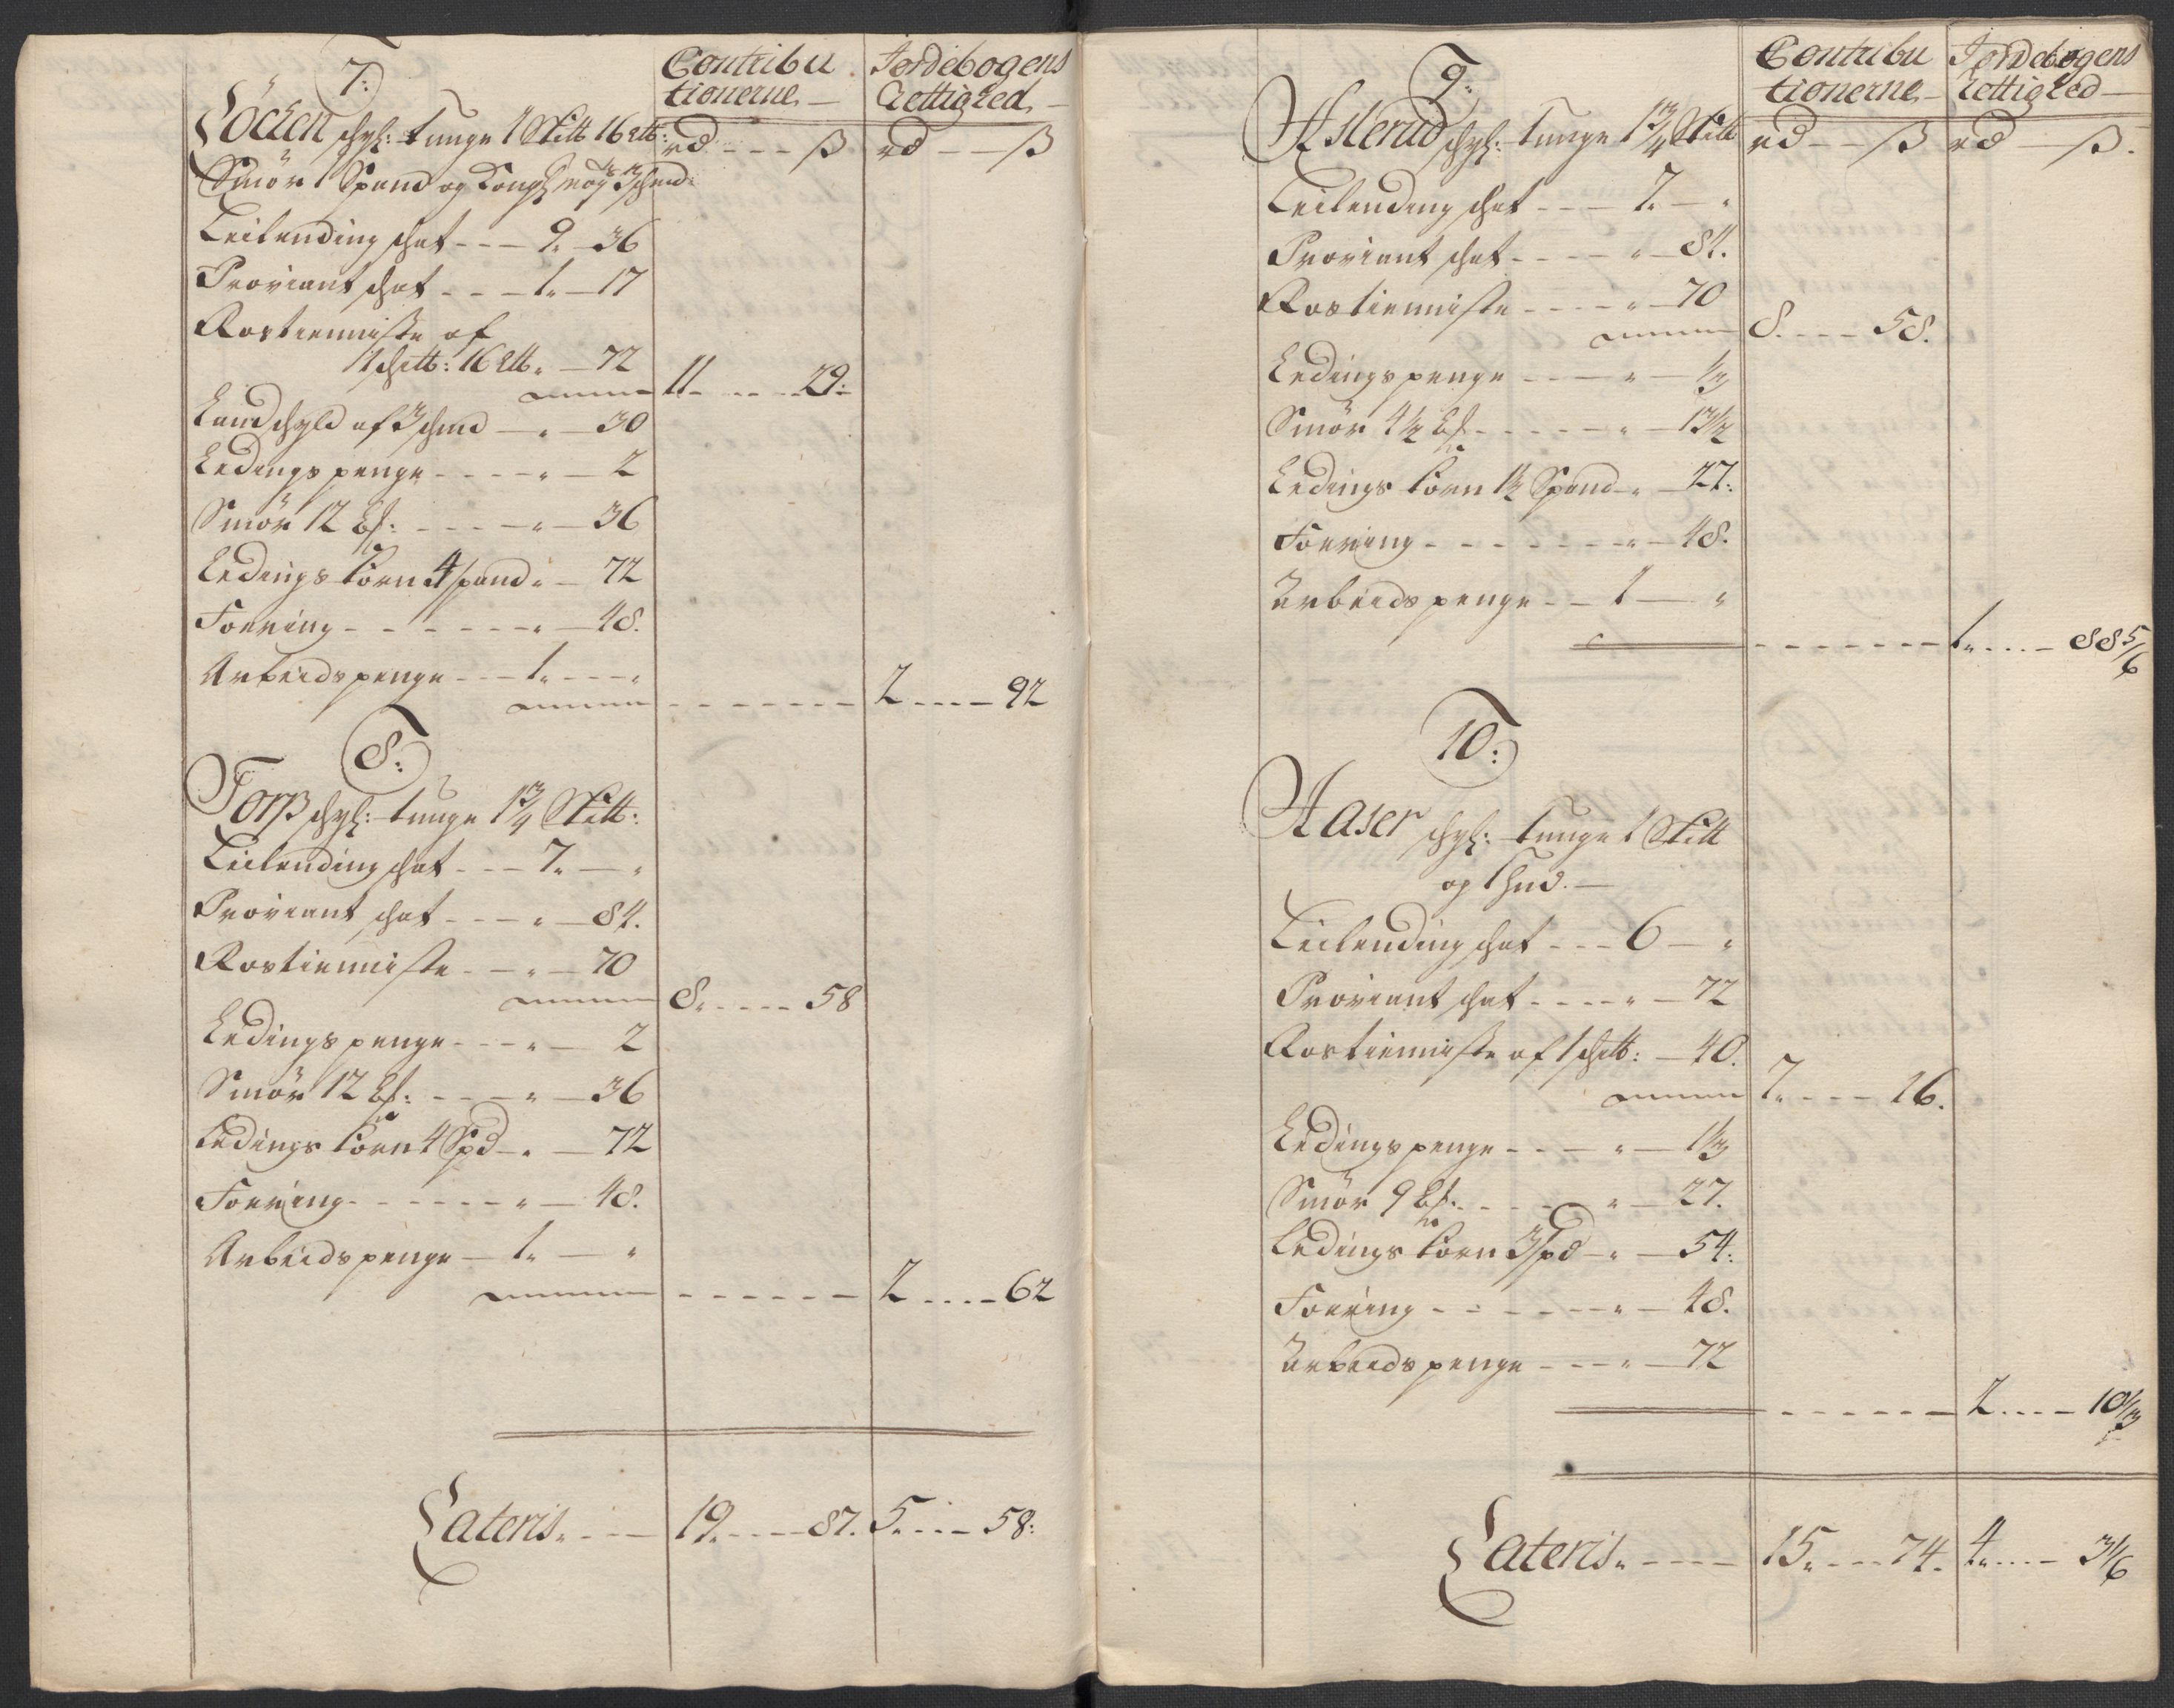 7:
Contribu
tionerne
Jordebogens
Rettighed
Löcken schyl: tunge 1 Skitt 16 ltb:
rd --- ß rd -- ß
Smör 1 Spand og Kongl.
Leilending schat --- 9. -- 36
Proviant schat --- 1. -- 17
Rostienniste af
1 schitt: 16 ltb. -- 72
11. ---- 29:
Landschyld af 3 schind -- „ -- 30
Ledings penge ---- „ -- 2
Smör 12 --- „ -- 36
Ledings korn 4 spand „ -- 72
Foering ------ „ -- 48.
Arbeids penge --- 1. --- „
------- 2 ---- 92
8:
Torp schyl: tunge 1 3/4 Skitt:
Leilending schat --- 7. -- „
Proviant schat --- „ -- 84.
Rostienniste -- „ -- 70
8. ---- 58
Ledings penge --- „ -- 2
Smör 12 --- „ -- 36
Ledings korn 4 Spd -- „ -- 72
Foering ------ „ -- 48.
Arbeids penge -- 1. -- „
------ 2 ---- 62
Lateris. --- 19. ---- 87. 5. --- 58:
9:
Contribu
tionerne
Jordebogens
Rettighed
Asterud schyl: tunge 1 3/4 Skitt
rd -- ß rd -- ß.
Leilending schat --- 7. -- „
Proviant schat ---- „ -- 84.
Rostienniste ---- „ -- 70
8. --- 58.
Ledings penge --- „ -- 1/3
Smör 4 1/2 ----- „ -- 13 1/2
Ledings korn 1 1/2 Spand -- „ -- 27:
Foering ------- „ -- 48.
Arbeids penge -- 1 -- „
------- 1. ---- 88 5/6
10:
Aaser schyl: tunge 1 Skitt
og 1 hud. --
Leilending schat --- 6 -- „
Proviant schat ---- „ -- 72
Rostienniste af 1 schitt: -- 40.
7. --- 16.
Ledings penge --- „ -- 1 1/3
Smör 9 ---- „ -- 27.
Ledings korn 3 spd -- „ -- 54:
Foering ------ „ -- 48.
Arbeids penge --- „ -- 72
------ 2 ---- 10 1/3
Lateris. ---- 15. --- 74. 4. ---- 3 1/6